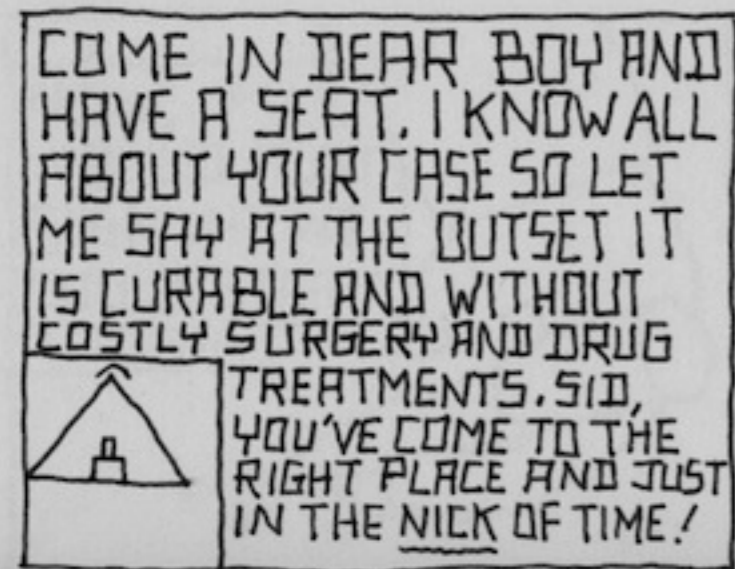 COME IN DEAR BOY AND
HAVE A SEAT. I KNOW ALL
ABOUT YOUR CASE SO LET
ME SAY AT THE OUTSET IT
IS CURABLE AND WITHOUT
COSTLY SURGERY AND DRUG
TREATMENTS. SID,
YOU'VE COME TO THE
RIGHT PLACE AND JUST
IN THE NICK OF TIME!